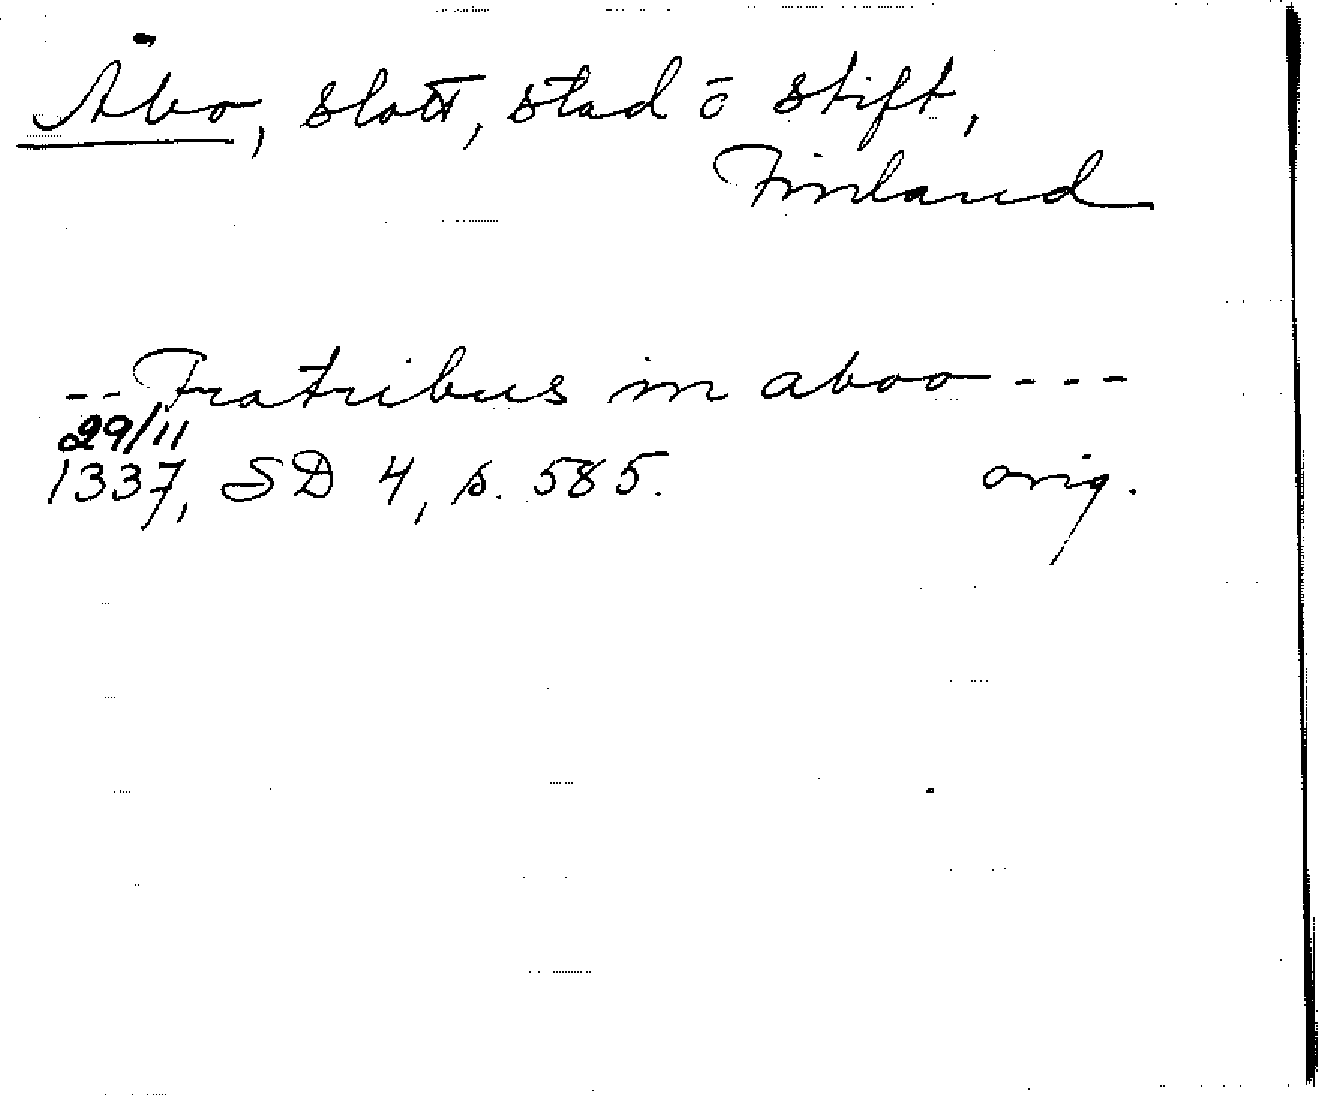 Åbo, slott, stad o stift,
Finland
-- Fratribus in aboo ---
29/11
1337, SD 4, s. 585. orig.